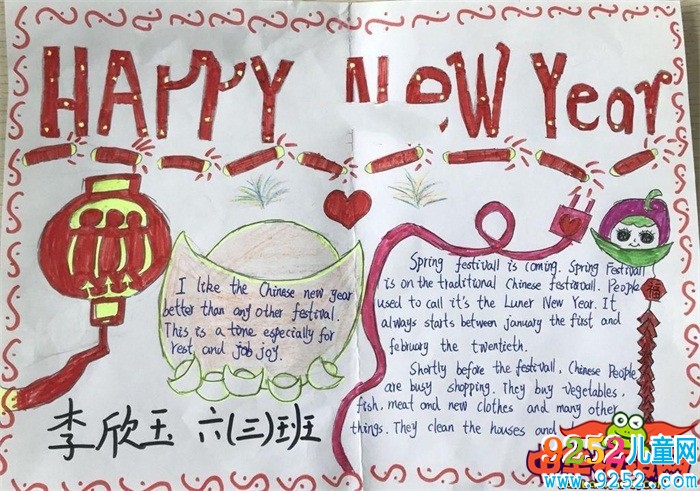 HAPPY New Year
I like the Chinese new year
better than any other festival.
This is a tone especially for
rest and job joy.
Spring festivall is coming. Spring Festivall
is on the traditional Chinese festivall. People
used to call it's the Luner New Year. It
always starts between january the first and
february the twentieth.
Shortly before the festivall, Chinese People
are busy shopping. They buy vegetables,
fish, meat and new clothes and many other
things. They clean the houses and
福
李欣玉 六(三)班
9252儿童网
www.9252.com